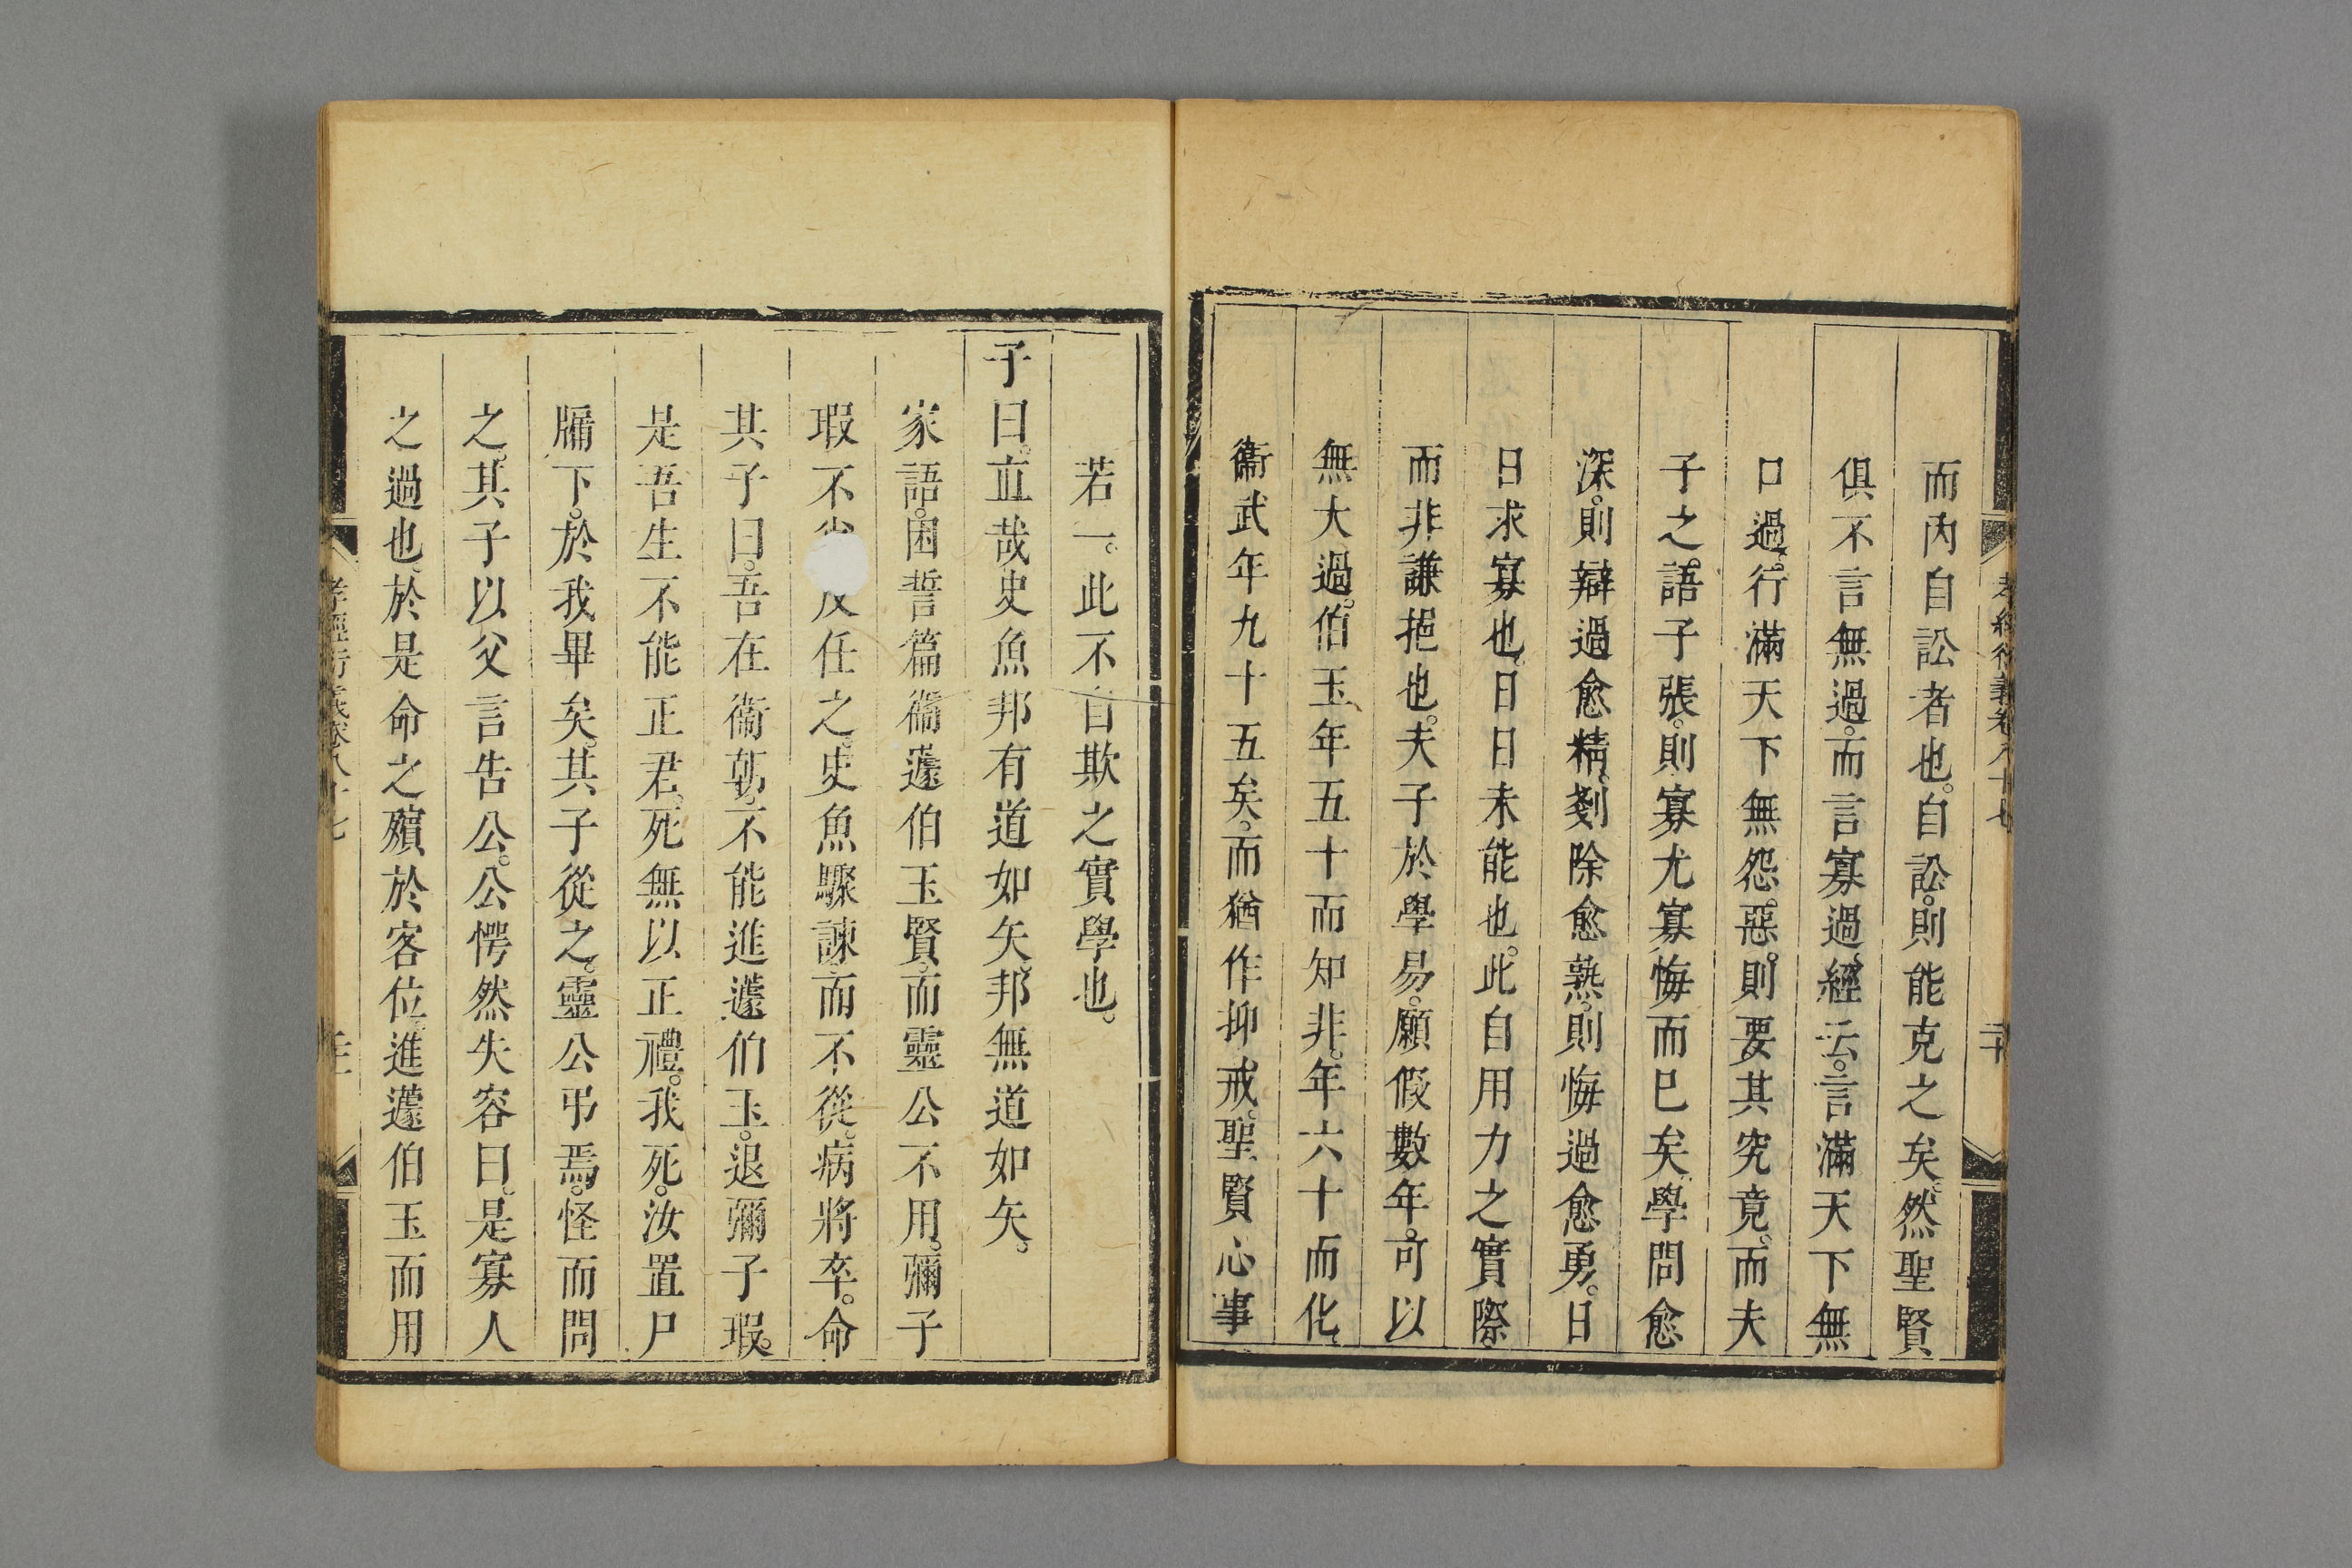 孝經衍義卷八十七
二十
而內自訟者也。自訟。則能克之矣。然聖賢
俱不言無過。而言寡過。經云。言滿天下無
口過。行滿天下無怨惡。則要其究竟。而夫
子之。語子張。則寡尤寡悔而已矣。學問愈
深。則辯過愈精。剗除愈熟。則悔過愈勇。日
日求寡也。日日未能也。此自用力之實際。
而非謙挹也。夫子於學易。願假數年。可以
無大過。伯玉年五十而知非。年六十而化。
衞武年九十五矣。而猶作抑戒。聖賢心事
若一。此不自欺之實學也。
子曰。直哉史魚邦有道如矢。邦無道如矢。
家語。困誓篇衞蘧伯玉賢。而靈公不用。彌子
瑕不反任之。史魚驟諫。而不從。病將卒。命
其子曰。吾在衞朝。不能進蘧伯玉。退彌子瑕。
是吾生不能正君。死無以正禮。我死。汝置尸
牖下。於我畢矣。其子從之。靈公弔焉。怪而問
之。其子以父言告公。公愕然失容曰。是寡人
之過也。於是命之殯於客位。進蘧伯玉而用
孝經衍義卷八十七